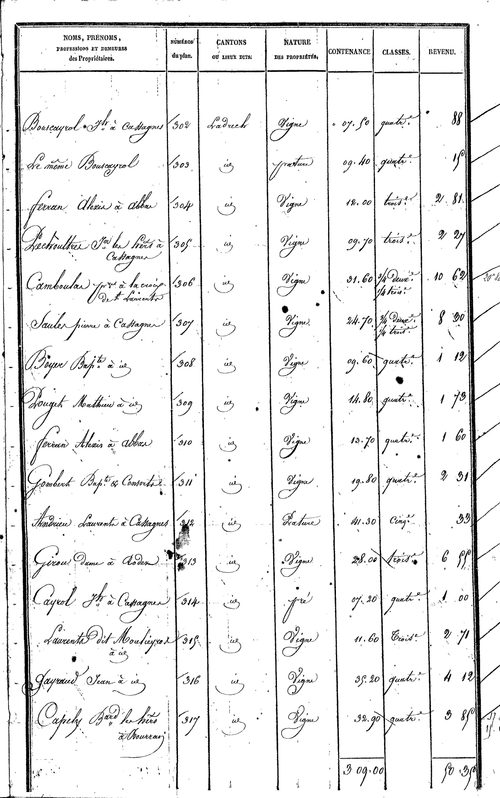 NOMS, PRÉNOMS, PROFESSIONS ET DEMEURES des Propriétaires. NUMÉROS du plan. CANTONS OU LIEUX DITS. NATURE DES PROPRIÉTÉS. CONTENANCE. CLASSES. REVENU.
Bouscayrol Jh à Cassagnes 302 Ladrech Vigne 07.50 quatr. 88
Le même Bouscayrol 303 id pature 09.40 quatr. 15
ferran Alexis à abbas 304 id Vigne 12.00 trois. 2 81
les hérs à Cassagnes 305 id Vigne 09.70 trois. 2 27
Camboulas pre à la croix de St Laurents 306 id Vigne 31.60 3/4 deux. 1/4 trois. 10 62
Saules pierre à Cassagnes 307 id Vigne 24.70 deux. trois. 8 20
Boyer Bapte à id 308 id Vigne 09.60 quatr. 1 12
Pouget Mathieu à id 309 id Vigne 14.80 quatr. 1 73
ferran Alexis à abbas 310 id Vigne 13.70 quatr. 1 60
Gombert Bapte & Consorts 311 id Vigne 19.80 quatr. 2 31
Andrieu Laurens à Cassagnes 312 id Pature 41.30 Cinq. 33
Girou dame à Rodez 313 id Vigne 28.00 trois. 6 55
Cayrol Jh à Cassagnes 314 id pré 07.20 quatr. 1 00
Laurents dit à id 315 id Vigne 11.60 Trois. 2 71
Gayraud Jean à id 316 id Vigne 35.20 quatr. 4 12
Capely Bard les hérs à 317 id Vigne 32.90 quatr. 3 85
3 09.00 50 35